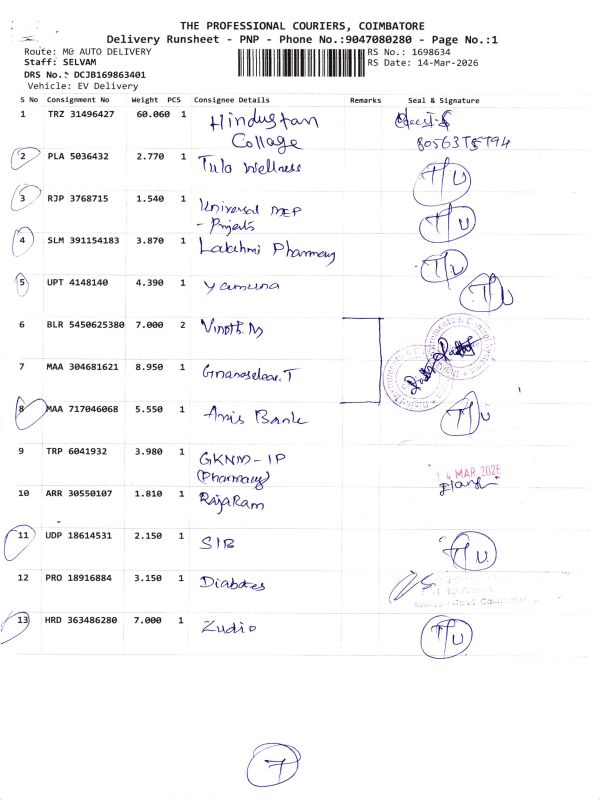 THE PROFESSIONAL COURIERS, COIMBATORE
Delivery Runsheet - PNP - Phone No.:9047080280 - Page No.:1
Route: MG AUTO DELIVERY
RS No.: 1698634
Staff: SELVAM
RS Date: 14-Mar-2026
DRS No.: DCJB169863401
Vehicle: EV Delivery
S No Consignment No Weight PCS Consignee Details Remarks Seal & Signature
1 TRZ 31496427 60.060 1 Hindustan
Collage
2 PLA 5036432 2.770 1 Tula Wellness T/U
3 RJP 3768715 1.540 1 Universal MEP T/U
- Projects
4 SLM 391154183 3.870 1 Lakshmi Pharmacy T/U
5 UPT 4148140 4.390 1 Yamuna T/U
6 BLR 5450625380 7.000 2 Vinoth.M
7 MAA 304681621 8.950 1 Gnanaselvar.T
8 MAA 717046068 5.550 1 Axis Bank T/U
9 TRP 6041932 3.980 1 GKNM-IP
(Pharmacy)
4 MAR 2026
10 ARR 30550107 1.810 1 RajaRam
11 UDP 18614531 2.150 1 SIB T/U
12 PRO 18916884 3.150 1 Diabetes
13 HRD 363486280 7.000 1 Zudio T/U
7